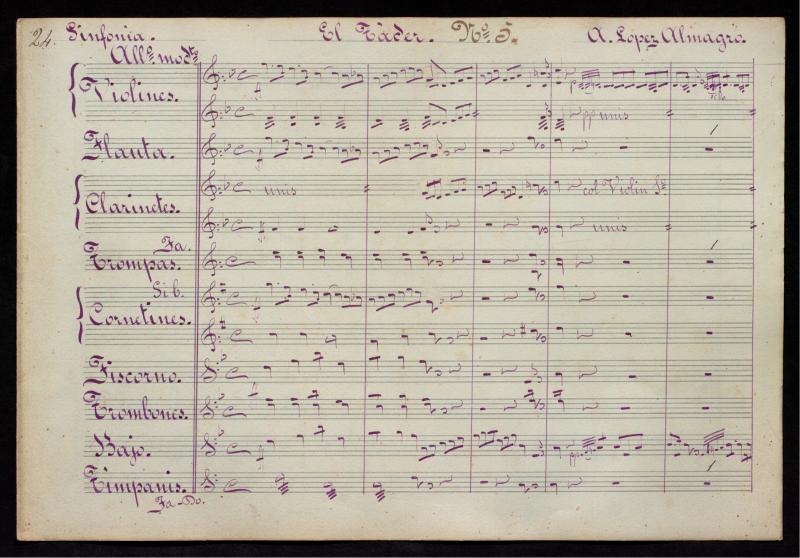 24. Sinfonia. El Táder. Nº 5. A. López Almagro.
All.º mod.to
Violines.
pp unis
Flauta.
unis col Violin 1º
Clarinetes.
unis
Fa.
Trompas.
Si b.
Cornetines.
Fiscorno.
Trombones.
Bajo.
pp
Timpanis.
Fa-Do.